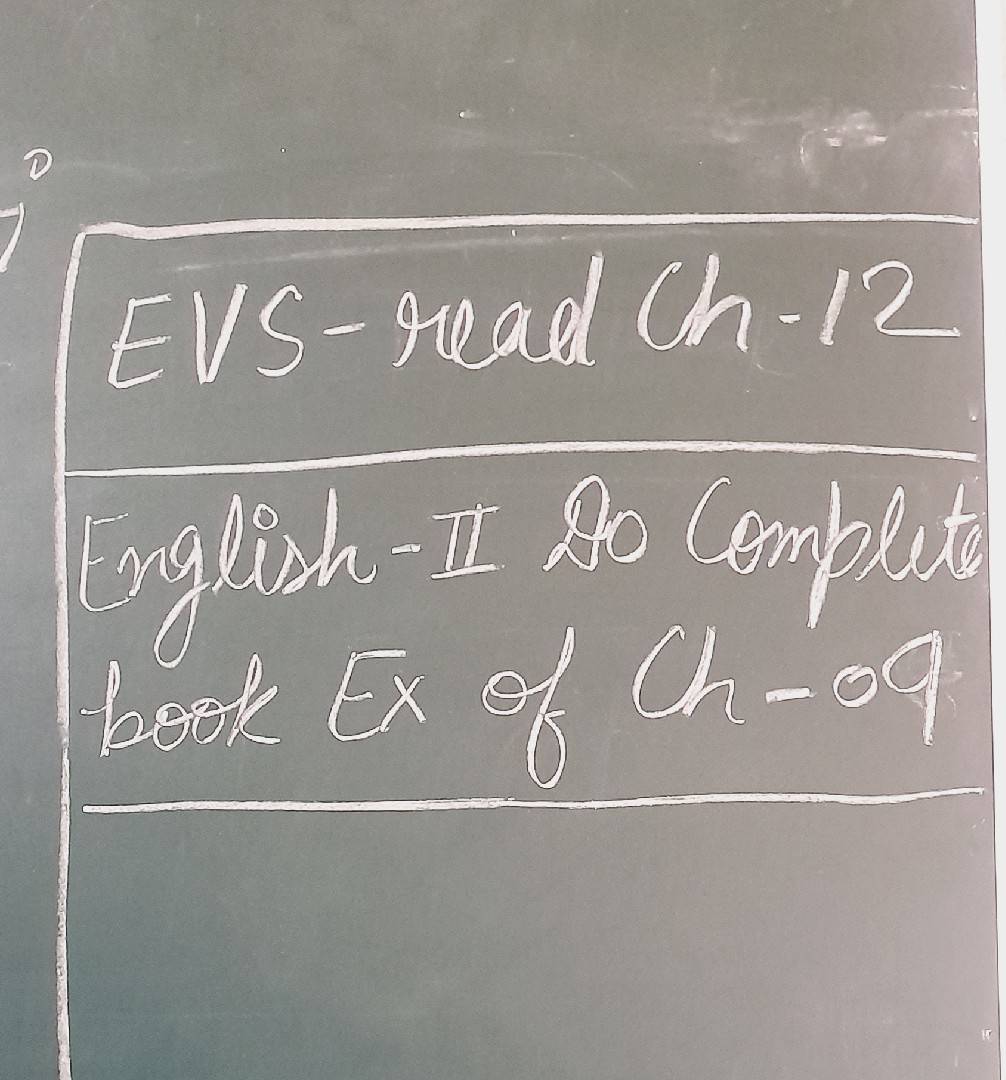 EVS-read Ch-12
English-II Do Complete
book Ex of Ch-09